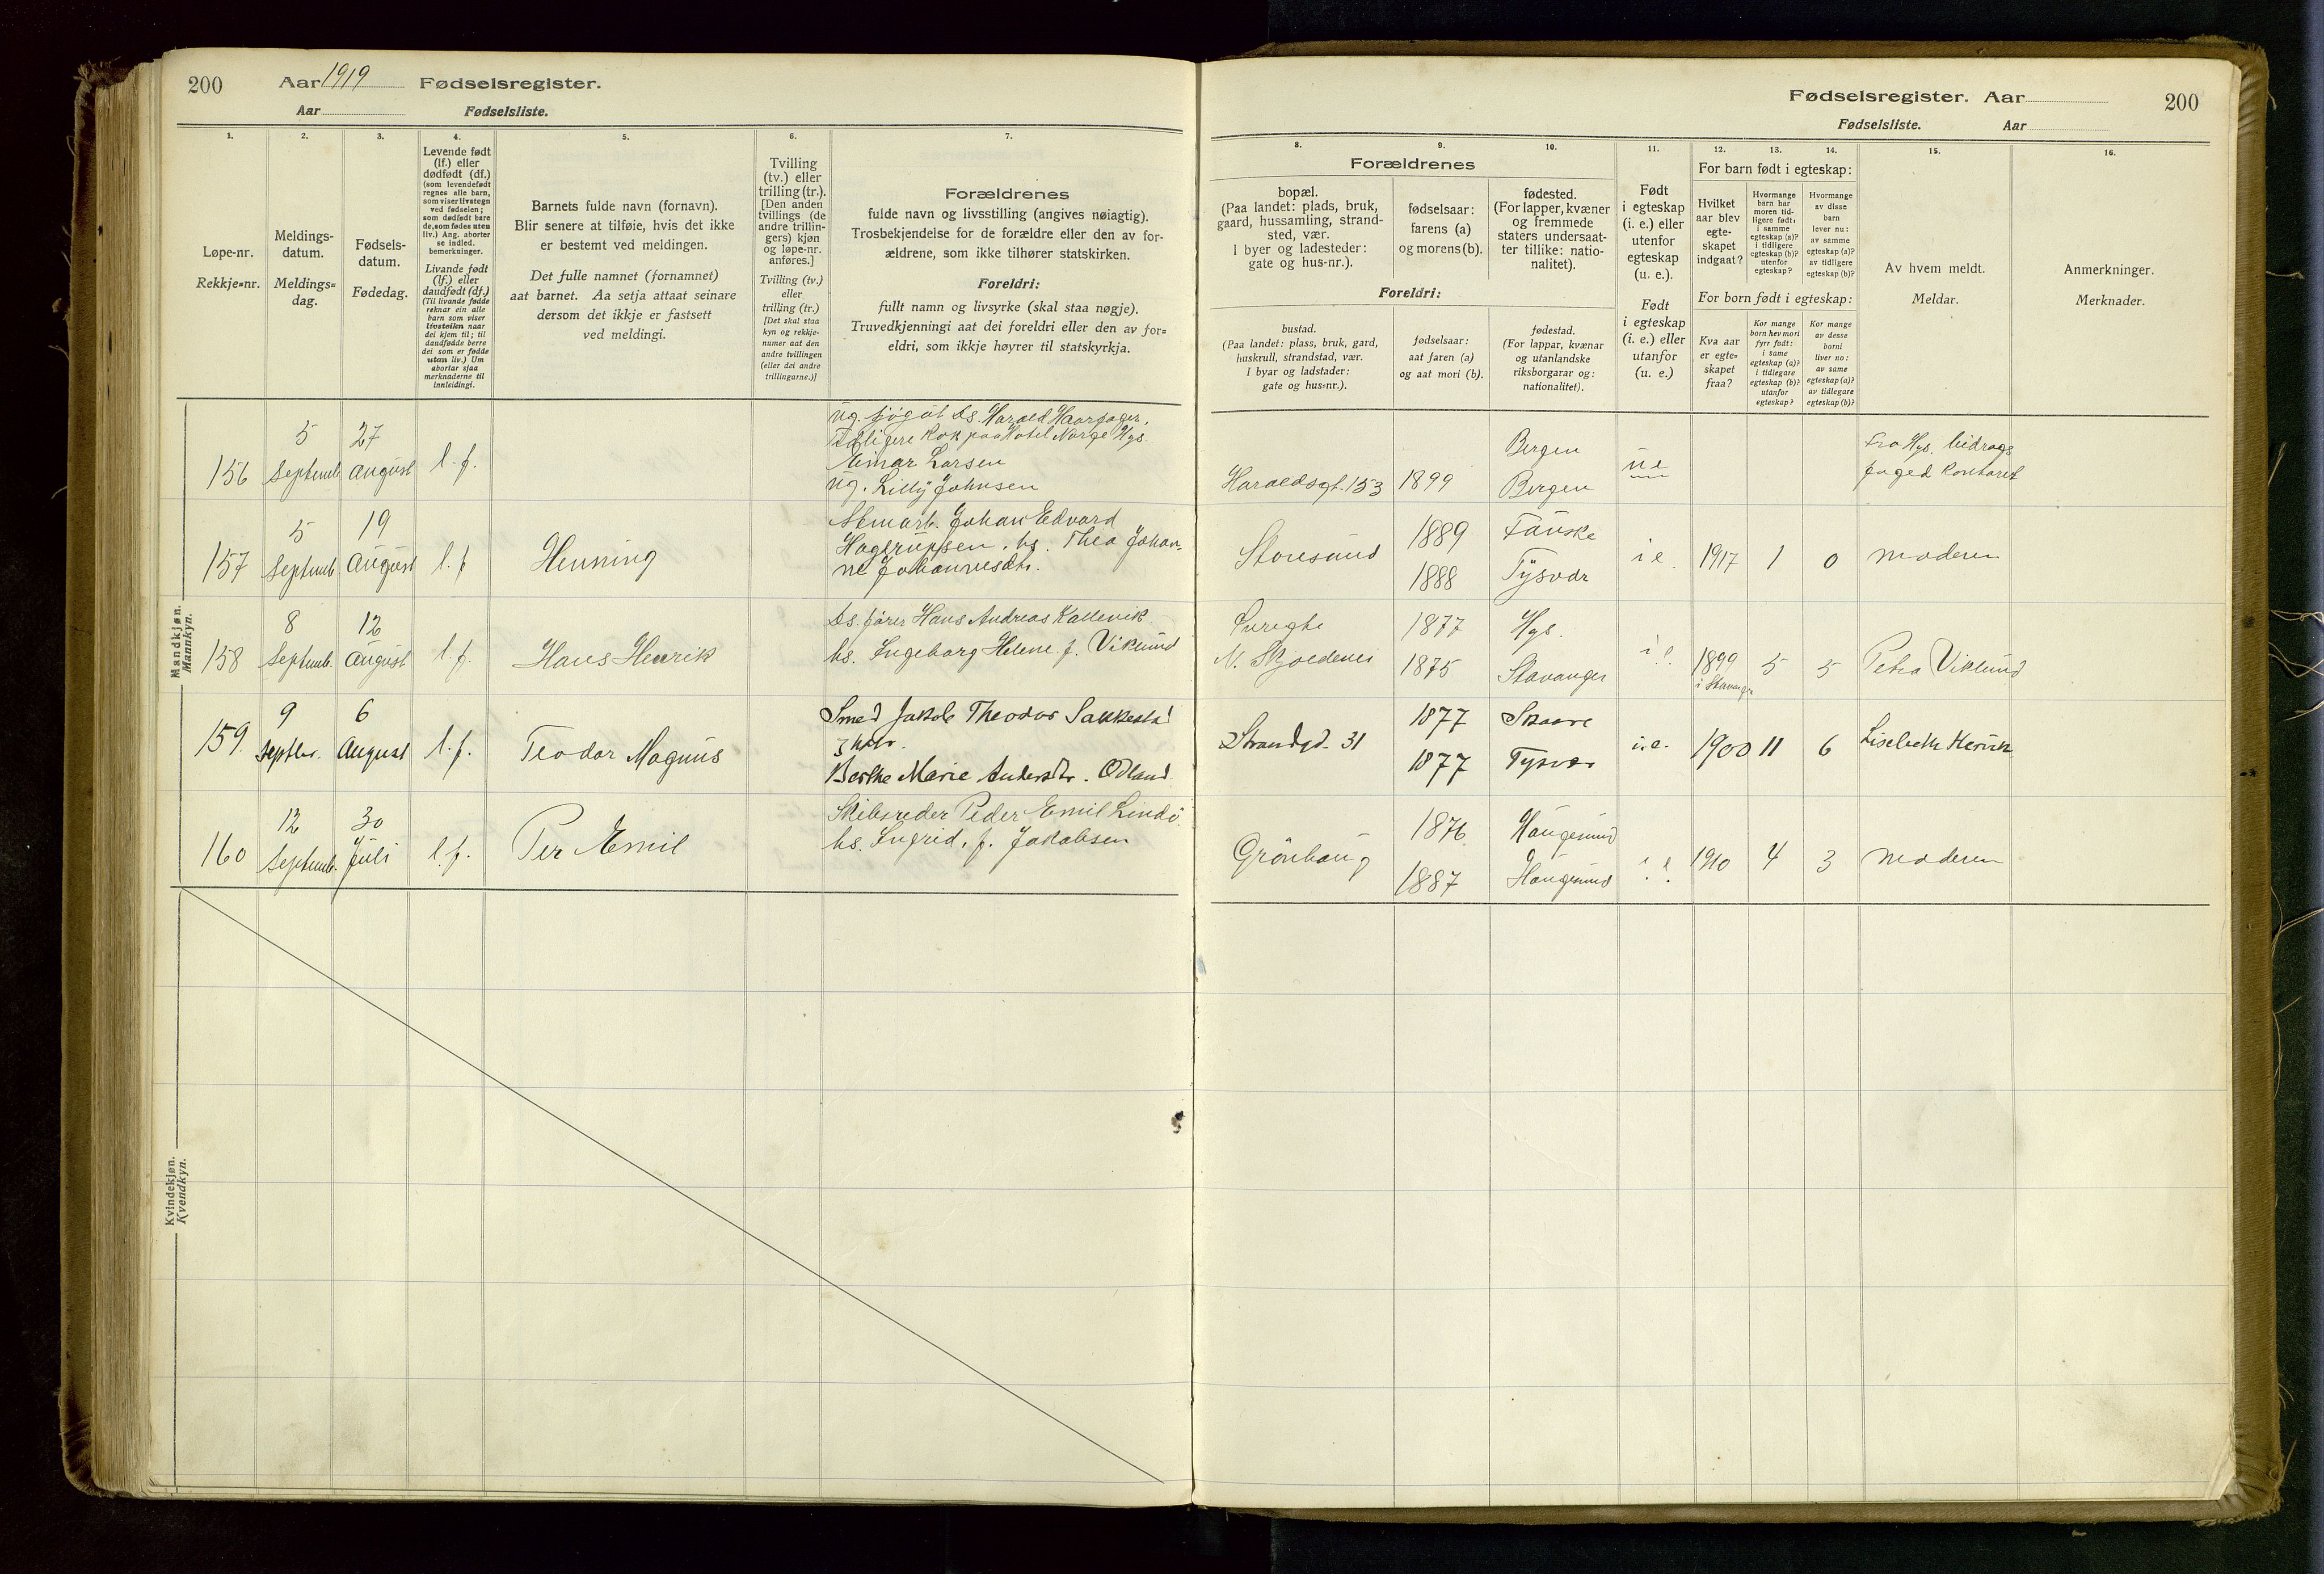 200 Aar 1919 Fødselsregister.
Aar Fødselsliste.
1. 2. 3. 4. 5. 6. 7.
Løpe-nr.
Rekkje-nr.
Meldings-
datum.
Meldings-
dag.
Fødsels-
datum.
Fødedag.
Levende født
(lf.) eller
dødfødt (df.)
(som levendefødt
regnes alle barn,
som viser livstegn
ved fødselen;
som dødfødt bare
de, som fødes uten
liv.) Ang. aborter
se indled.
bemerkninger.
Livande født
(lf.) eller
daudfødt (df.)
(Til livande fødde
reknar ein alle
barn som viser
livsteikn naar
dei kjem til; til
daudfødde berre
dei som er fødde
utan liv.) Um
abortar sjaa
merknaderne til
innleidingi.
Barnets fulde navn (fornavn).
Blir senere at tilføie, hvis det ikke
er bestemt ved meldingen.
Det fulle namnet (fornamnet)
aat barnet. Aa setja attaat seinare
dersom det ikkje er fastsett
ved meldingi.
Tvilling
(tv.) eller
trilling (tr.).
[Den anden
tvillings (de
andre trillin-
gers) kjøn
og løpe-nr.
anføres.]
Tvilling (tv.)
eller
trilling (tr.)
[Det skal staa
kyn og rekkje-
numer aat den
andre tvillingen
(eller dei andre
trillingarne.)]
Forældrenes
fulde navn og livsstilling (angives nøiagtig).
Trosbekjendelse for de forældre eller den av for-
ældrene, som ikke tilhører statskirken.
Foreldri:
fullt namn og livsyrke (skal staa nøgje).
Truvedkjenningi aat dei foreldri eller den av for-
eldri, som ikkje høyrer til statskyrkja.
Mandkjøn.
Mannkyn.
156
5
Septemb.
27
August
l. f.
Harald Haarfager,
Kok paa Hotel Norge Hgs.
Einar Larsen
ug. Lilly Johnsen
157
5
Septemb
19
August
l. f
Henning
Johan Edvard
Hagerupsen, hs. Thea Johan-
ne Johannesdtr.
158
8
Septemb.
12
August
l. f.
Hans Henrik
Ds. fører Hans Andreas Kallevik
hs. Ingeborg Helene f. Viklund
159.
9
Septbr.
6
August
l. f.
Teodor Magnus
Smed Jakob Theodor Sakkestad
Berthe Marie Andersdtr. Ødland
160
12
Septemb.
30
Juli
l. f.
Per Emil
Skibsreder Peder Emil Lindø
hs. Ingrid, f. Jakobsen
Kvindekjøn.
Kvendkyn.
Fødselsregister. Aar 200
Fødselsliste. Aar
8. 9. 10. 11. 12. 13. 14. 15. 16.
Forældrenes
bopæl.
(Paa landet: plads, bruk,
gaard, hussamling, strand-
sted, vær.
I byer og ladesteder:
gate og hus-nr.).
fødselsaar:
farens (a)
og morens (b).
fødested.
(For lapper, kvæner
og fremmede
staters undersaat-
ter tillike: natio-
nalitet).
Foreldri:
bustad.
(Paa landet: plass, bruk, gard,
huskrull, strandstad, vær.
I byar og ladstader:
gate og hus-nr.).
fødselsaar:
aat faren (a)
og aat mori (b).
fødestad.
(For lappar, kvænar
og utanlandske
riksborgarar og:
nationalitet).
Født
i egteskap
(i. e.) eller
utenfor
egteskap
(u. e.).
Født
i egteskap
(i. e.) eller
utanfor
(u. e.)
For barn født i egteskap:
Hvilket
aar blev
egte-
skapet
indgaat?
Hvormange
barn har
moren tid-
ligere født:
i samme
egteskap (a)?
i tidligere
egteskap (b)?
utenfor
egteskap?
Hvormange
av disse
barn
lever nu:
av samme
egteskap (a)?
av tidligere
egteskap (b)?
For born født i egteskap:
Kva aar
er egte-
skapet
fraa?
Kor mange
born hev mori
fyrr født:
i same
egteskap (a)?
i tidlegare
egteskap (b)?
utanfor
egteskap?
Kor mange
av desse
borni
liver no:
av same
egteskap (a)?
av tidlegare
egteskap (b)?
Av hvem meldt.
Meldar.
Anmerkninger.
Merknader.
Haraldsgt. 153
1899
Bergen
Bergen
u e
Fra Hgs. bidrags
foged kontoret
Storesund
1889
1888
Fauske
Tysvær
i e.
1917
1
0
Moderen
N. Skjoldenes
1877
1875
Hgs.
Stavanger
i. e.
1899
i Stavanger
5
5
Petra Viklund
Strandgd. 31
1877
1877
Skaare
Tysvær
i. e.
1900
11
6
Lisebeth
Grønhaug
1876
1887
Haugesund
Haugesund
i. e.
1910
4
3
Moderen